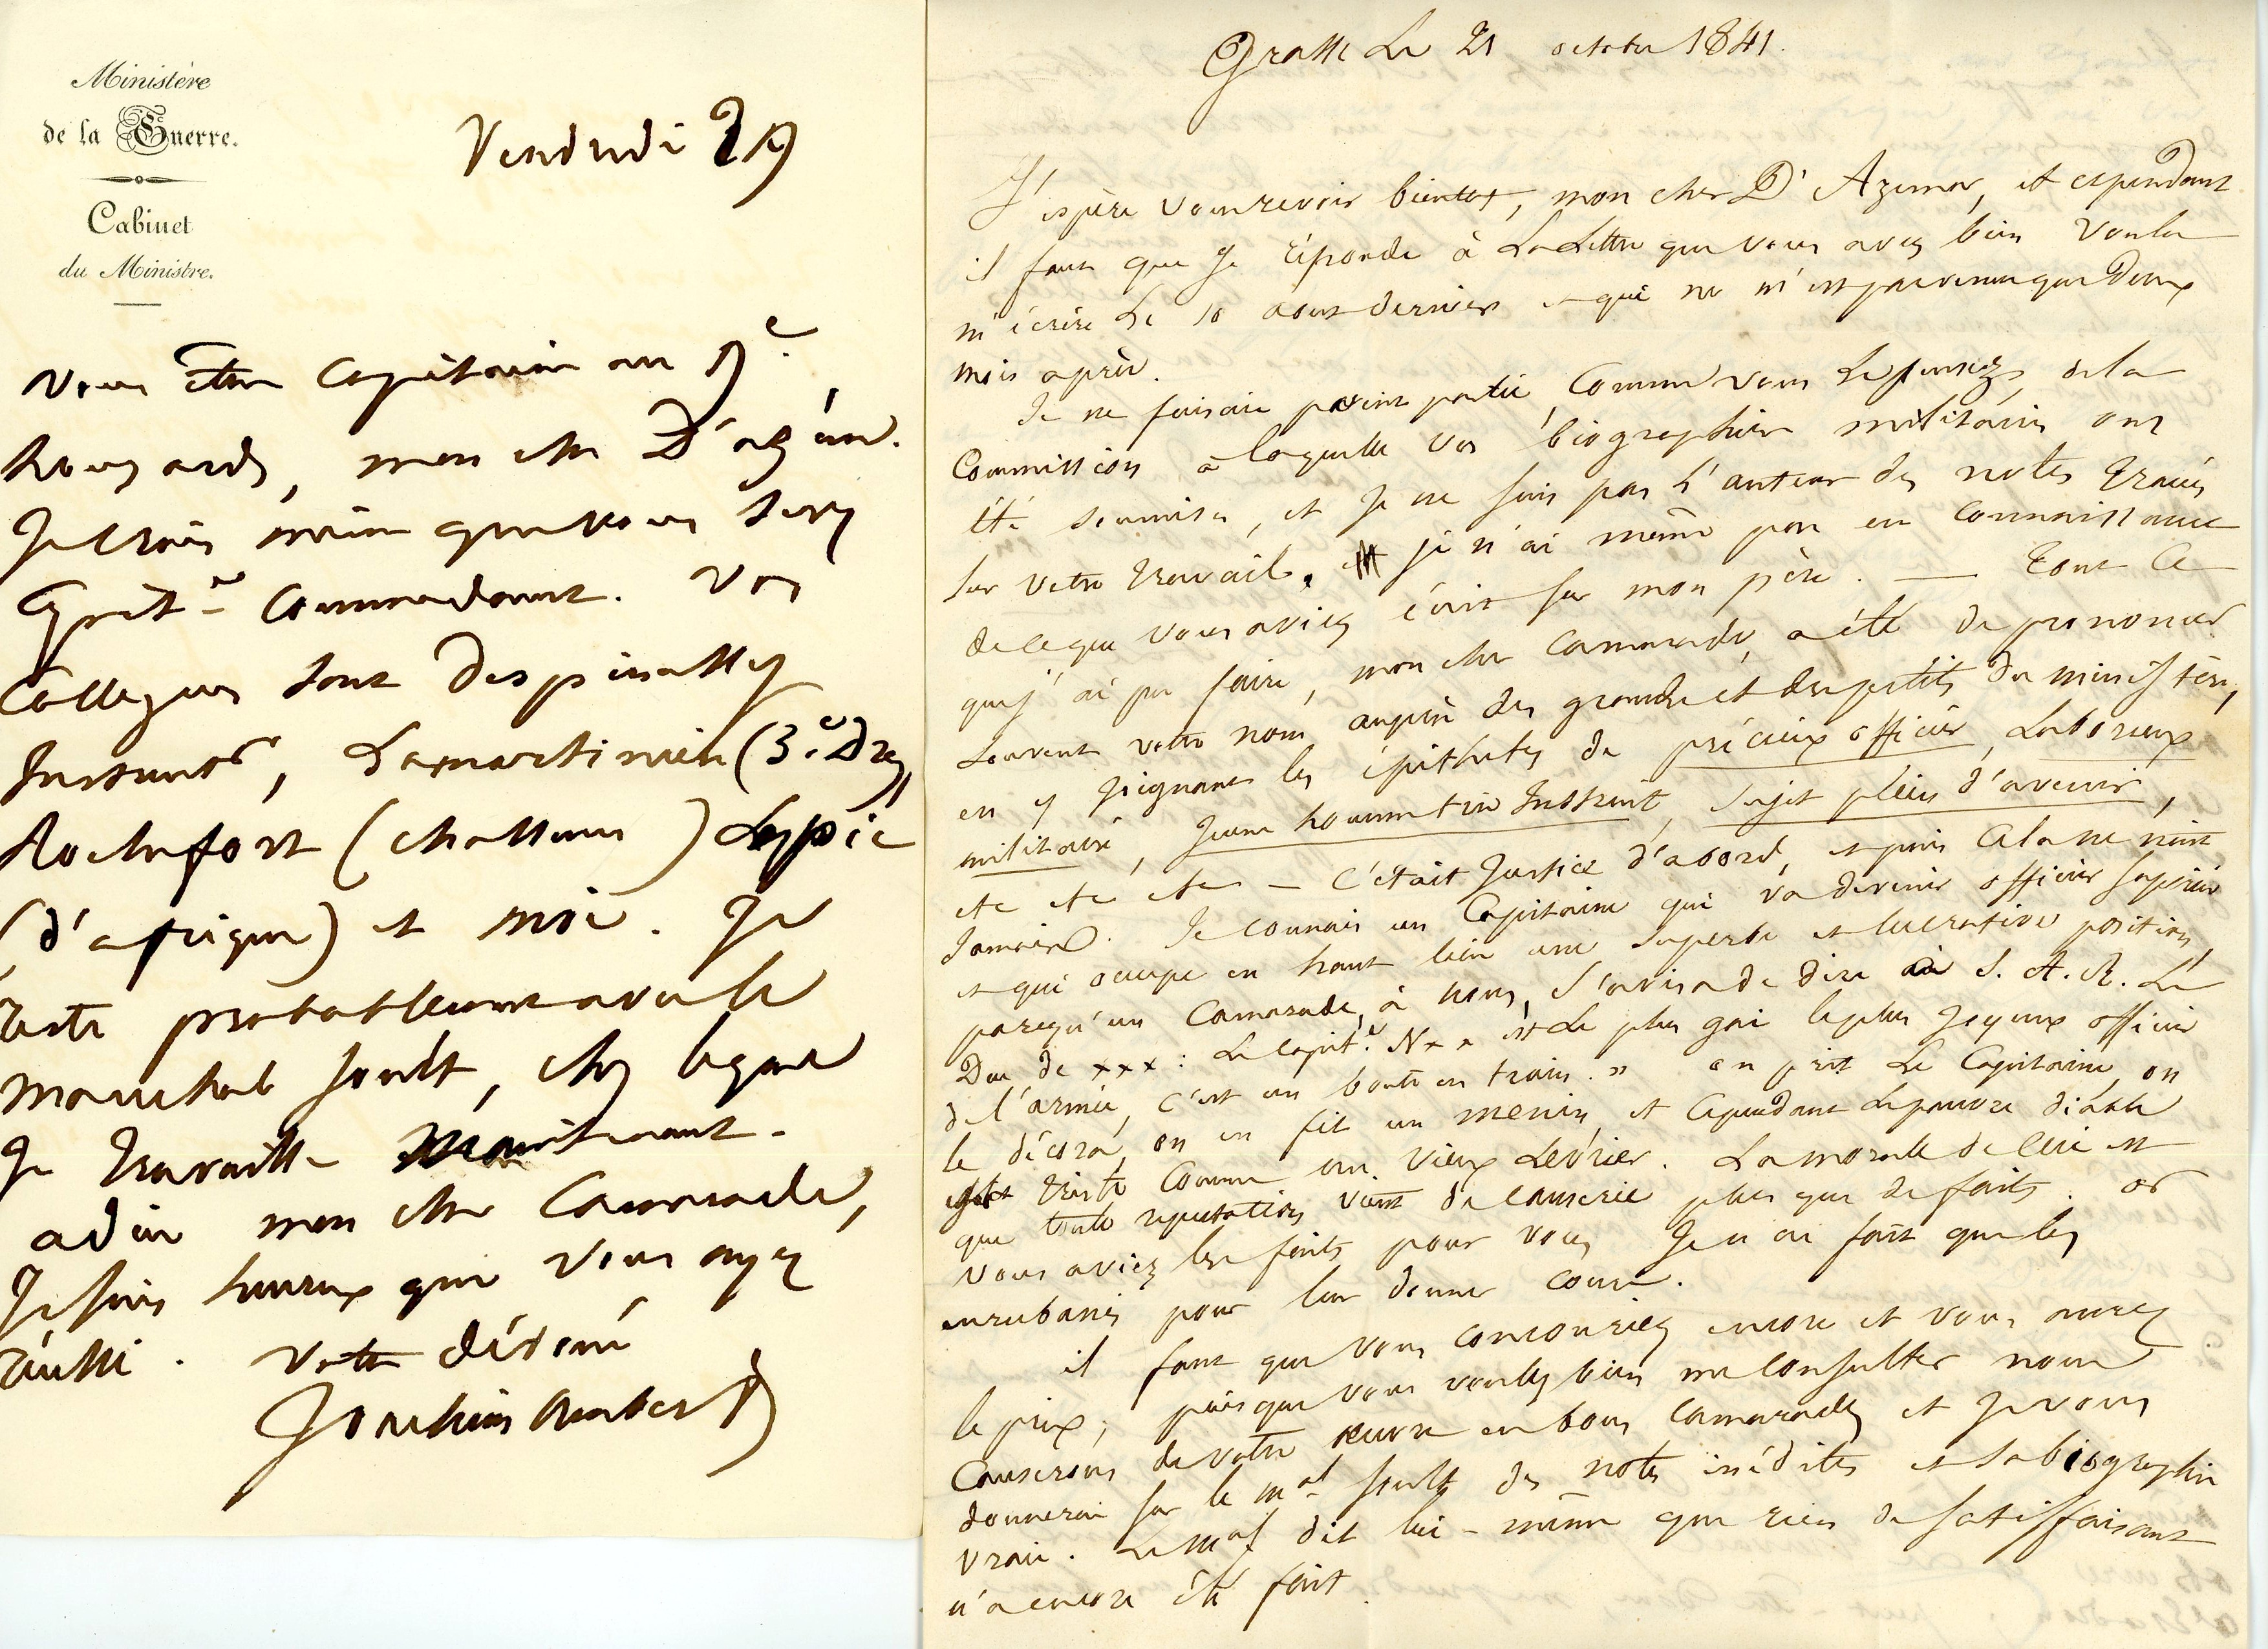 Ministère
de la Guerre.
Cabinet
du Ministre.
Vendredi 29
Vous êtes Capitaine au 9e
houzards, mon cher D'azém.
Je crois même que vous serez
Capit.ne Commandant. Vos
Collegues sont Despinassy
Instruct.r, Lamartinien (3.e Drag,
Rochefort (chasseurs) Leppic
(d'afrique) et moi. Je
reste probablement avec le
Marechal Soult, chez lequel
Je travaille maintenant.
adieu mon cher Camarade,
Je suis heureux que vous ayez
réussi. Votre dévoué
Joachim Ambert
Grasse Le 21 octobre 1841.
J'espère vous revoir bientot, mon cher D'Azemar, et cependant
il faut que je réponde à La Lettre que vous avez bien voulu
m'écrire Le 10 aout dernier et qui ne m'est parvenue que Deux
mois après.
Je ne faisais point partie, Comme vous Le pensiez, de la
Commission à laquelle vos biographies militaires ont
été soumises, et je ne suis pas L'auteur des notes tracées
sur votre travail. je n'ai même pas eu connaissance
de ce que vous aviez écrit sur mon père. — Tout ce
que j'ai pu faire, mon cher camarade, a été de prononcer
souvent votre nom auprès des grands et des petits du ministère,
en y joignant les épithetes de précieux officier, Laborieux
militaire, Jeune homme très Instruit, Sujet plein d'avenir,
etc etc etc — C'était Justice d'abord, et puis cela ne nuit
Jamais. Je connais un Capitaine qui va devenir officier supérieur
et qui occupe en haut lieu une superbe et lucrative position,
parcequ'un Camarade à nous, s'avisa de dire à S. A. R. Le
Duc de xxx : Le capit.e N++ est Le plus gai le plus Joyeux officier
de l'armée, c'est un boute en train. » on prit Le Capitaine, on
le décora, on en fit un menin, et cependant Le pauvre diable
est triste Comme un vieux Levrier. La morale de ceci est
que toute reputation vient de causerie plus que de faits. or
vous aviez les faits pour vous Je n'ai fait que les
enrubaner pour leur donner cours.
il faut que vous concouriez encore et vous aurez
le prix; puisque vous voulez bien me consulter nous
Causerons de votre œuvre en bons camarades et Je vous
donnerai sur le mal Soult des notes inédites et sa biographie
vraie. Le mal dit lui-même que rien de satisfaisant
n'a encore été fait.